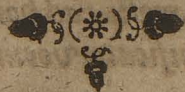 §(*)§
§